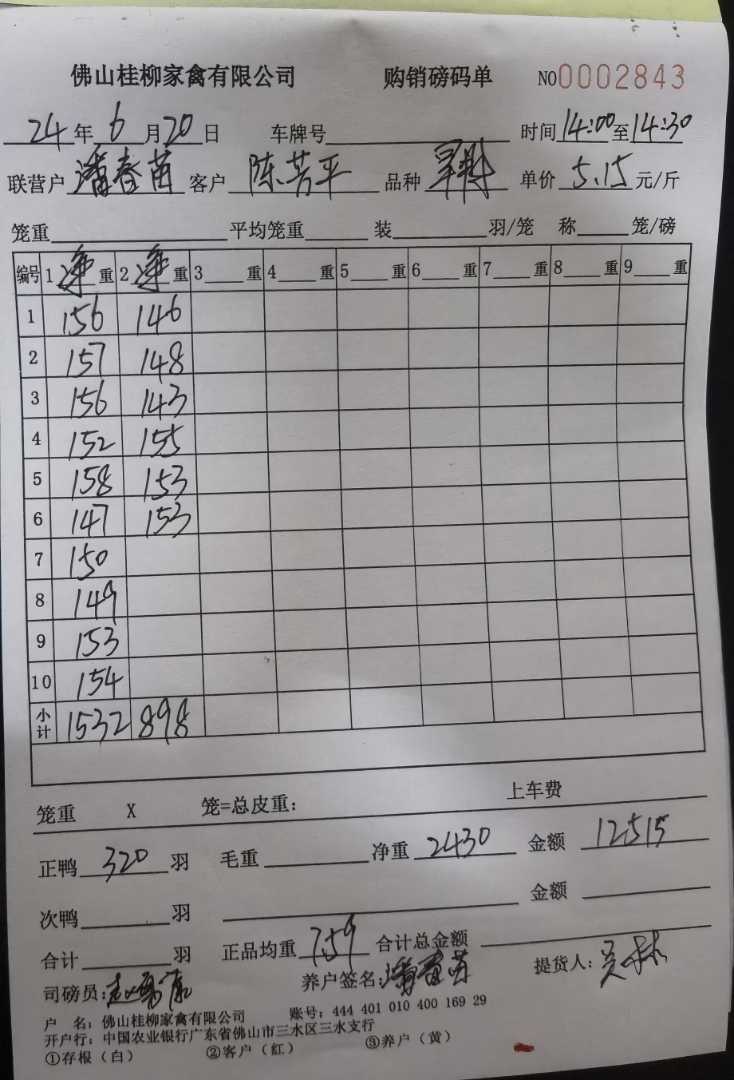 佛山桂柳家禽有限公司 购销磅码单 NO0002843
24年6月20日 车牌号 时间14:00至14:30
联营户潘春苗 客户陈芳平 品种 单价5.15元/斤
笼重 平均笼重 装 羽/笼 称 笼/磅
编号 1净重 2净重 3重 4重 5重 6重 7重 8重 9重
1 156 146
2 157 148
3 156 143
4 152 155
5 158 153
6 147 153
7 150
8 149
9 153
10 154
小计 1532 898
笼重 X 笼=总皮重: 上车费
正鸭320羽 毛重 净重2430 金额12515
次鸭 羽 金额
合计 羽 正品均重7.59 合计总金额
司磅员: 养户签名:潘春苗 提货人:
户 名: 佛山桂柳家禽有限公司 账号: 444 401 010 400 169 29
开户行: 中国农业银行广东省佛山市三水区三水支行
①存根(白) ②客户(红) ③养户(黄)